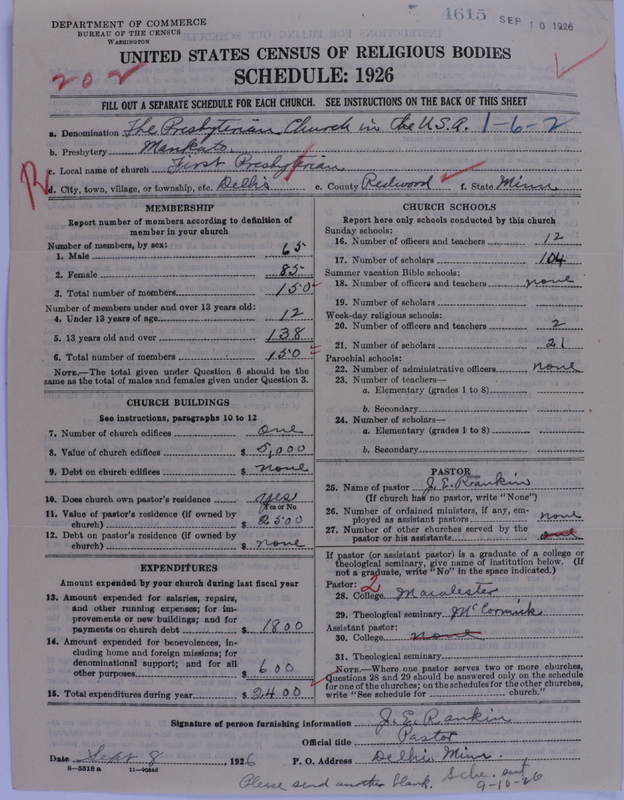 DEPARTMENT OF COMMERCE
BUREAU OF THE CENSUS
WASHINGTON
4615 SEP 10 1926
UNITED STATES CENSUS OF RELIGIOUS BODIES
SCHEDULE: 1926
202
FILL OUT A SEPARATE SCHEDULE FOR EACH CHURCH. SEE INSTRUCTIONS ON THE BACK OF THIS SHEET
a. Denomination The Presbyterian Church in the U.S.A. 1-6-2
b. Presbytery Mankato
c. Local name of church First Presbyterian
R
d. City, town, village, or township, etc. Delhi e. County Redwood f. State Minn
MEMBERSHIP
Report number of members according to definition of
member in your church
Number of members, by sex:
1. Male 65
2. Female 85
3. Total number of members 150
Number of members under and over 13 years old:
4. Under 13 years of age 12
5. 13 years old and over 138
6. Total number of members 150
NOTE.—The total given under Question 6 should be
same as the total of males and females given under Question 3.
CHURCH BUILDINGS
See instructions, paragraphs 10 to 12
7. Number of church edifices one
8. Value of church edifices $ 5,000
9. Debt on church edifices $ none
10. Does church own pastor's residence yes
Yes or No
11. Value of pastor's residence (if owned by
church) $ 2500
12. Debt on pastor's residence (if owned by
church) $ none
EXPENDITURES
Amount expended by your church during last fiscal year
13. Amount expended for salaries, repairs,
and other running expenses; for im-
provements or new buildings; and for
payments on church debt $ 1800
14. Amount expended for benevolences, in-
cluding home and foreign missions; for
denominational support; and for all
other purposes $ 600
15. Total expenditures during year $ 2400
CHURCH SCHOOLS
Report here only schools conducted by this church
Sunday schools:
16. Number of officers and teachers 12
17. Number of scholars 104
Summer vacation Bible schools:
18. Number of officers and teachers none
19. Number of scholars
Week-day religious schools:
20. Number of officers and teachers 2
21. Number of scholars 21
Parochial schools:
22. Number of administrative officers none
23. Number of teachers—
a. Elementary (grades 1 to 8)
b. Secondary
24. Number of scholars—
a. Elementary (grades 1 to 8)
b. Secondary
PASTOR
25. Name of pastor J. E. Rankin
(If church has no pastor, write "None")
26. Number of ordained ministers, if any, em-
ployed as assistant pastors none
27. Number of other churches served by the
pastor or his assistants
If pastor (or assistant pastor) is a graduate of a college or
theological seminary, give name of institution below. (If
not a graduate, write "No" in the space indicated.)
Pastor: 2
28. College Macalester
29. Theological seminary McCormick
Assistant pastor:
30. College none
31. Theological seminary
NOTE.—Where one pastor serves two or more churches,
Questions 28 and 29 should be answered only on the schedule
for one of the churches; on the schedules for the other churches,
write "See schedule for church."
Signature of person furnishing information J. E. Rankin
Official title Pastor
Date Sept 8, 1926 P. O. Address Delhi Minn.
8—5518a 11—9034d
Please send another blank. Sche. sent
9-10-26